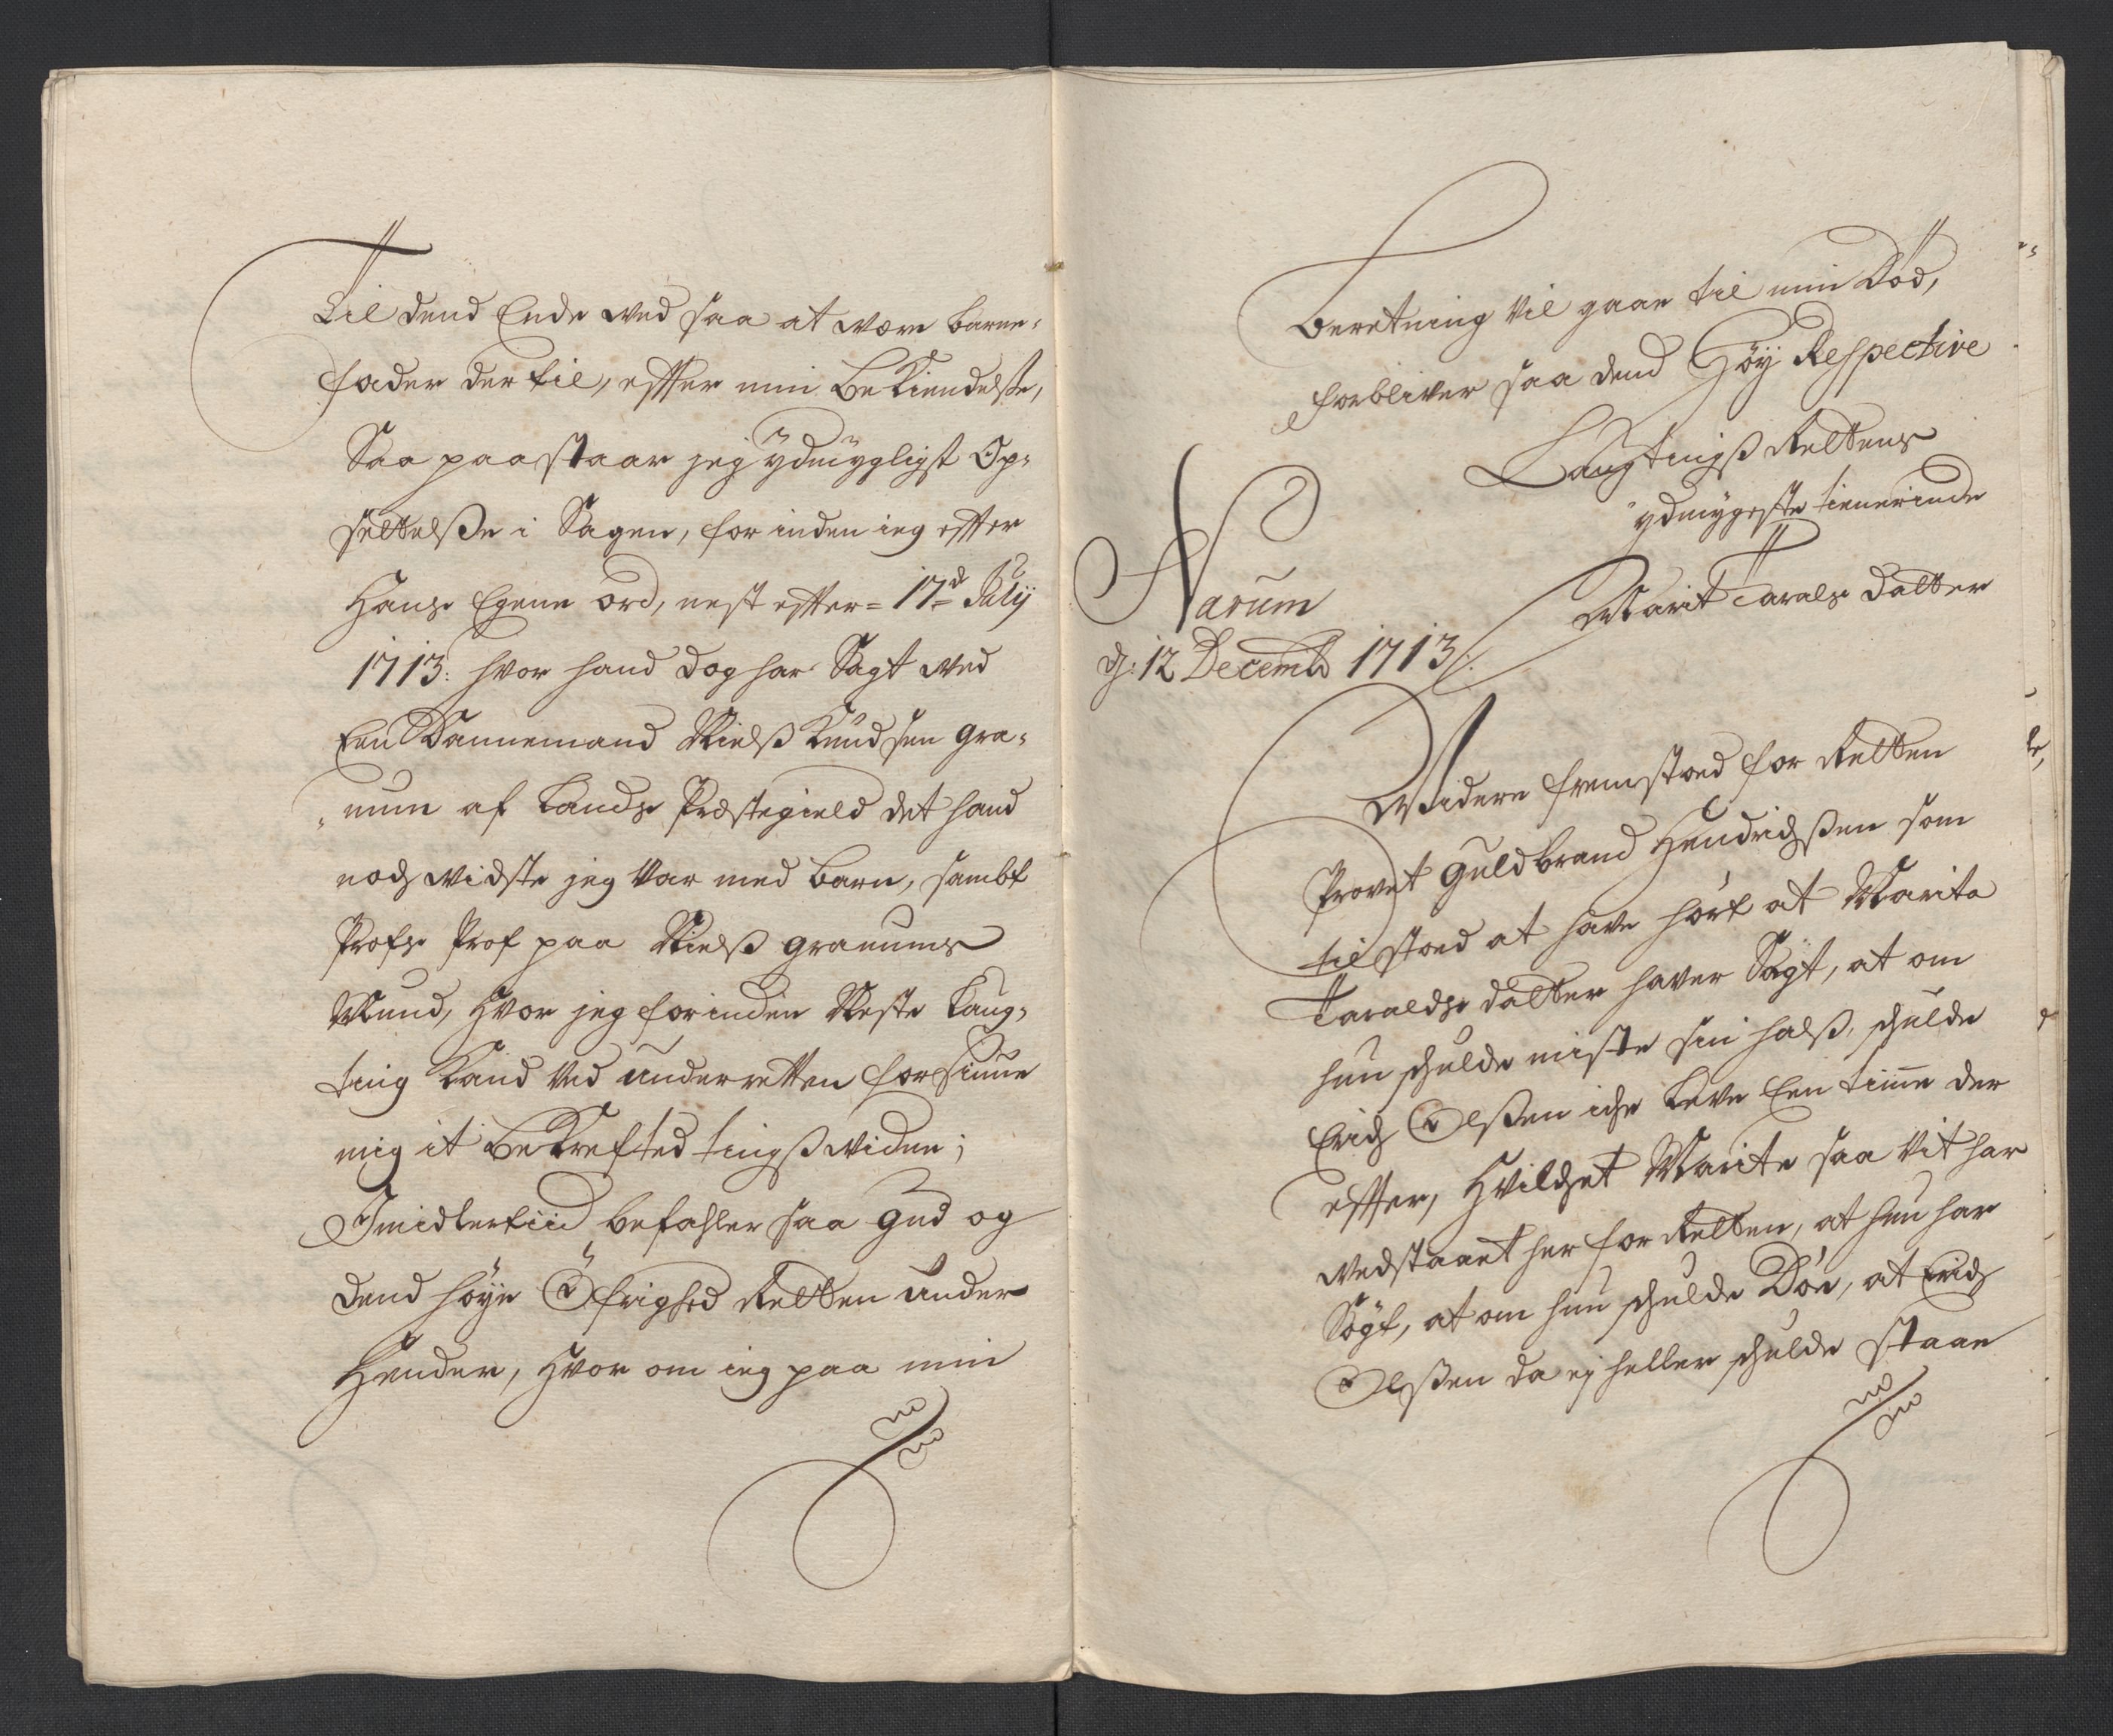 Til dend Ende ved saa at være barne-
fader der til, effter min Bekiendelse,
Saa paastaar jeg ÿdmygligst Op-
settelße i Sagen, for inden ieg effter
Hans Egene ord, nest effter = 17d July
1713: hvor hand dog har Sagt ved
Een Dannemand Nielß Knudsen gra-
num af Lands Præstegield det hand
noch vidste jeg var med barn, sambt
Profs Prof paa Nielß Granums
Mund, hvor jeg forinden Neste Laug-
ting kand ved underretten for
mig it bekrefted tingsvidne;
Imidlertiid befahler saa Gud og
dend höye Öfrighed Retten under
Hender, hvor om ieg paa min
Beretning vil gaae til min Död,
forbliver saa dend Höy Respective
Laugtingß Rettens
ydmygeste tienerinde
Marit Tarals datter
Narum
d: 12 Decembr 1713/.
Widere fremstoed for Retten
Provet Guldbrand Hendrichßen som
tilstoed at have hört at Marita
Taralds datter haver Sagt, at om
hun schulde miste sin halß, schulde
Erich Olßen iche Leve Een time der
effter, hvilchet Marite saa vit har
vedstaaet her for Retten, at hun har
Sagt, at om hun schulde Döe, at Erich
Olßen da ej heller schulde staae